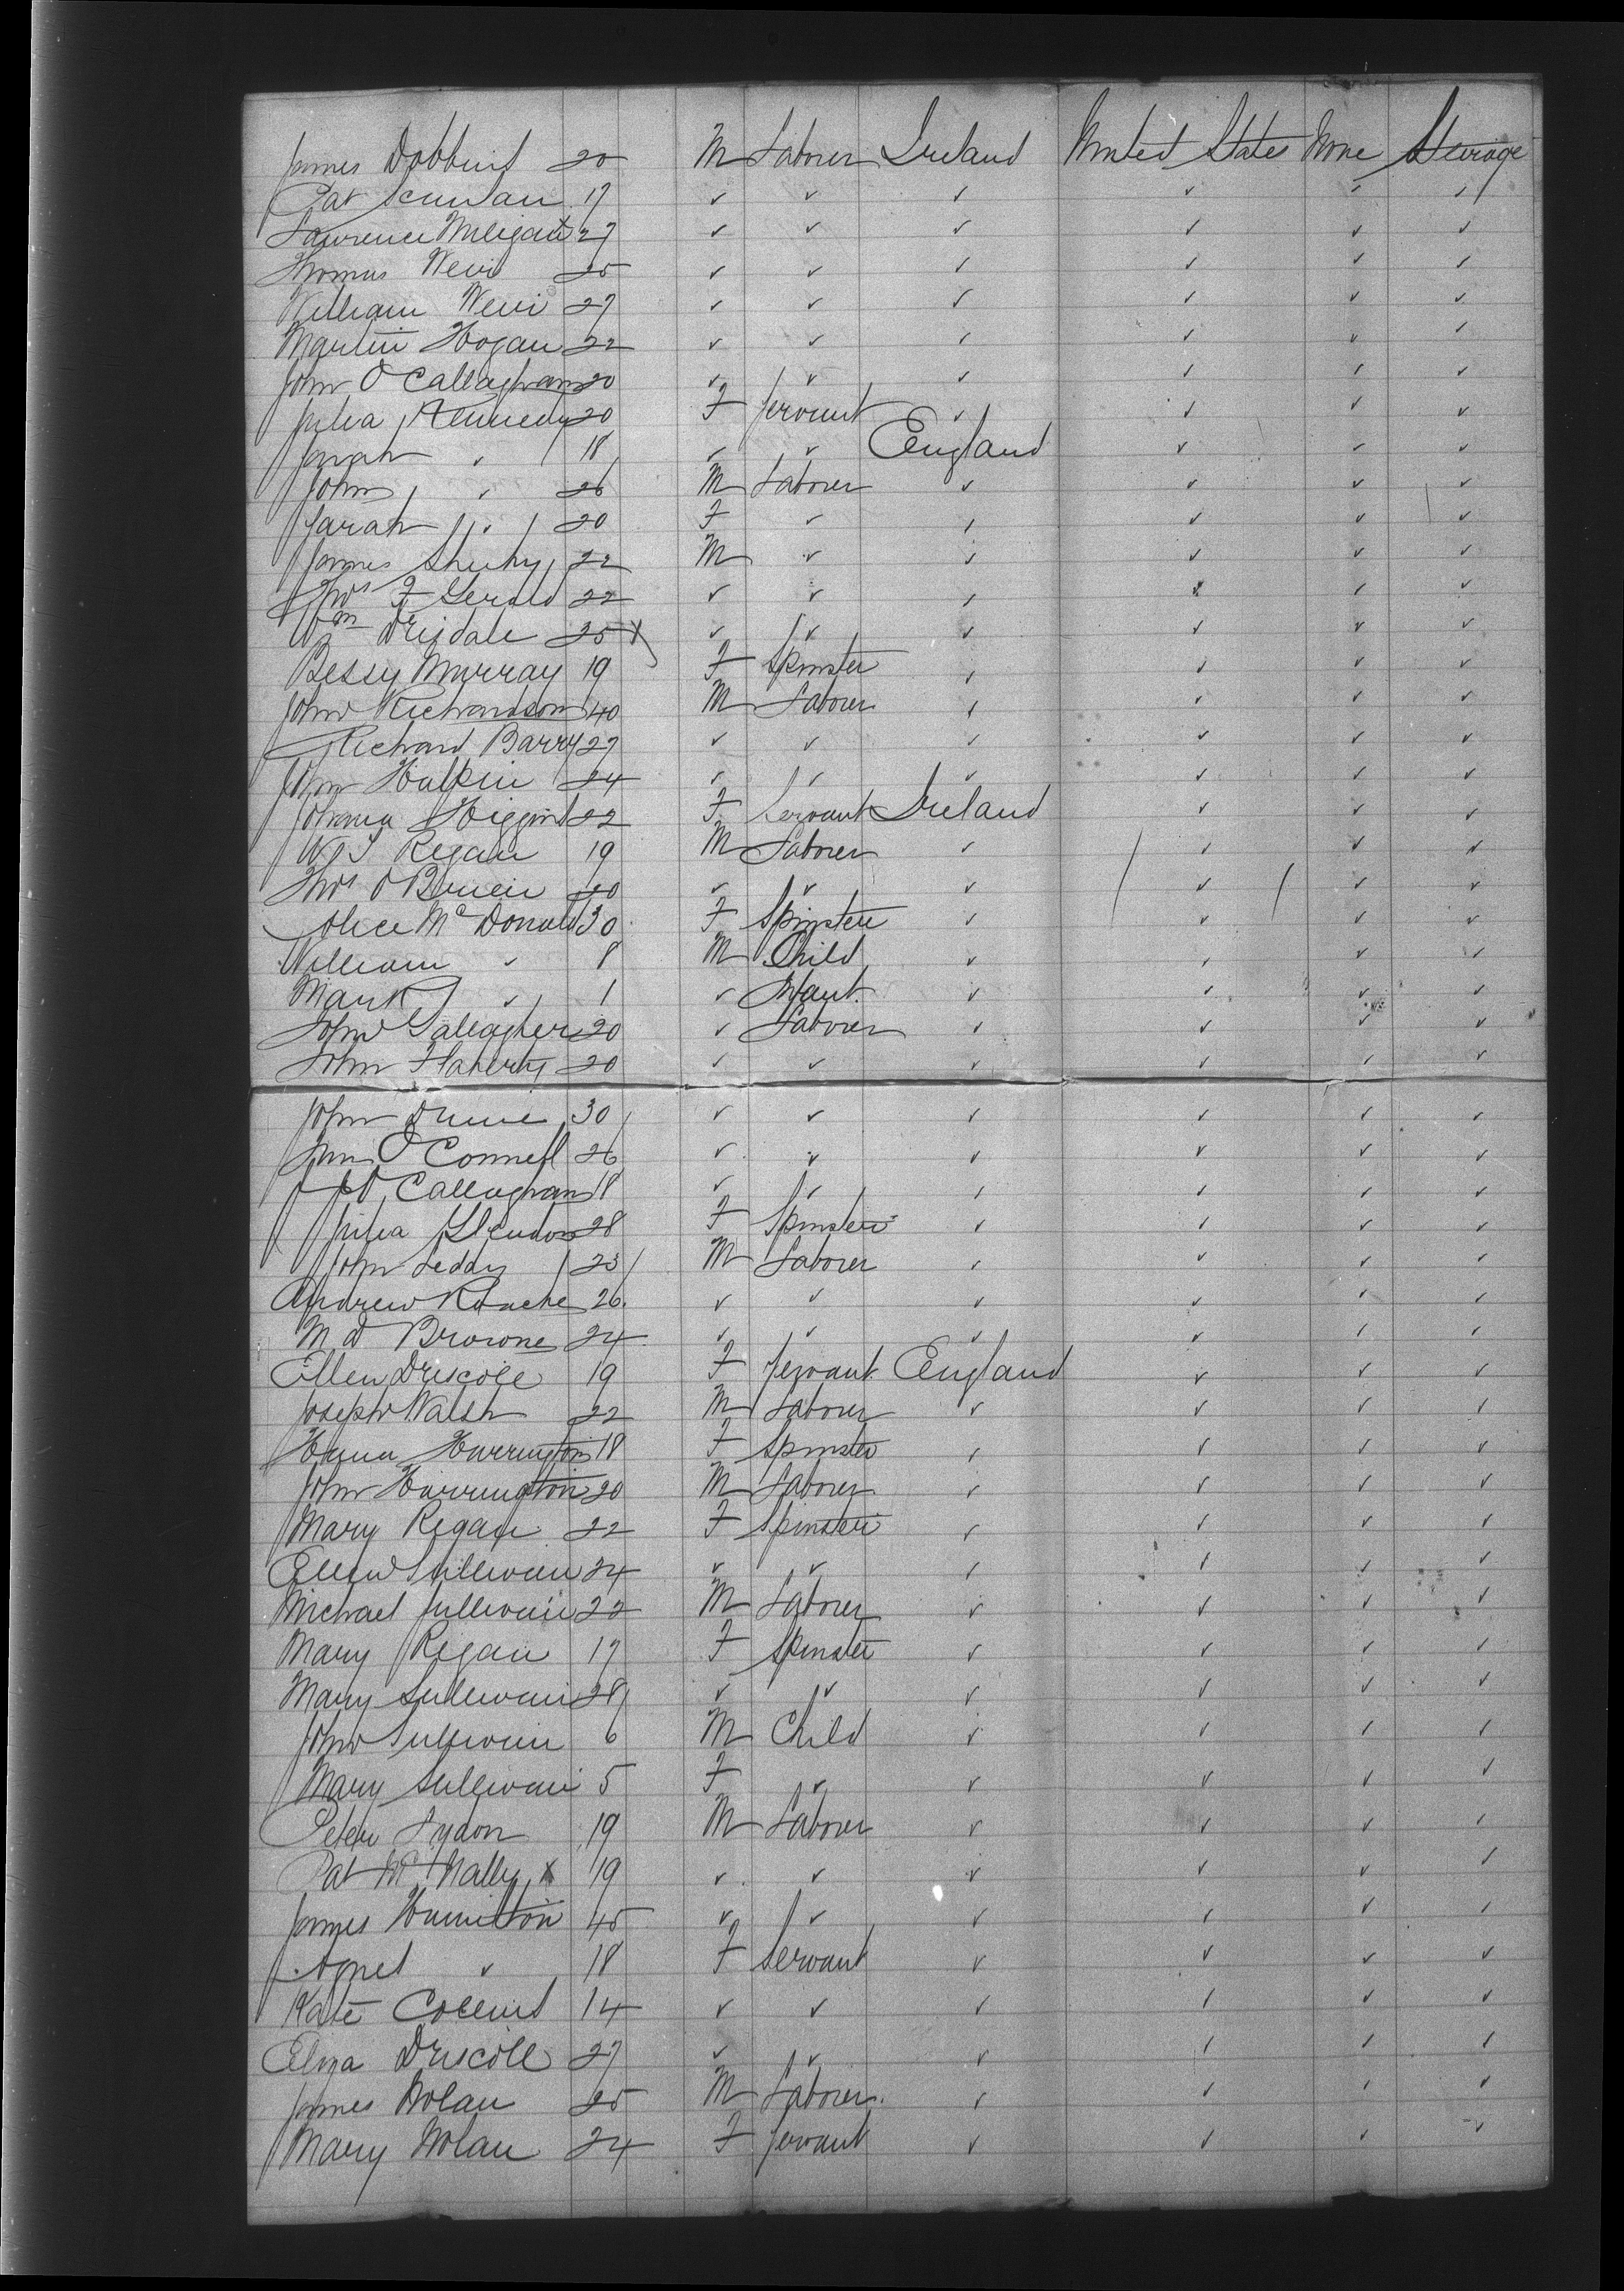 James Dobbins 20 M Laborer Ireland United States None Steerage
Pat Scanlan 17 ✓ ✓ ✓ ✓ ✓ ✓
Lawrence Meligan 27 ✓ ✓ ✓ ✓ ✓ ✓
Thomas Weir 25 ✓ ✓ ✓ ✓ ✓ ✓
William Weir 27 ✓ ✓ ✓ ✓ ✓ ✓
Martin Hogan 22 ✓ ✓ ✓ ✓ ✓ ✓
John O Callaghan 20 ✓ ✓ ✓ ✓ ✓ ✓
Julia Kennedy 20 F Servant ✓ ✓ ✓ ✓
Sarah ✓ 18 ✓ ✓ England ✓ ✓ ✓
John ✓ 26 M Laborer ✓ ✓ ✓ ✓
Sarah ✓ 20 F ✓ ✓ ✓ ✓ ✓
James Sheehy 22 M ✓ ✓ ✓ ✓ ✓
Thos F Gerald 22 ✓ ✓ ✓ ✓ ✓ ✓
Wm Drisdale 25 x ✓ ✓ ✓ ✓ ✓ ✓
Bessy Murray 19 F Spinster ✓ ✓ ✓ ✓
John Richardson 40 M Laborer ✓ ✓ ✓ ✓
Richard Barry 27 ✓ ✓ ✓ ✓ ✓ ✓
John Halpin 24 ✓ ✓ ✓ ✓ ✓ ✓
Johana Higgins 22 F Servant Ireland ✓ ✓ ✓
Regan 19 M Laborer ✓ ✓ ✓ ✓
Thos O Brien 20 ✓ ✓ ✓ ✓ ✓ ✓
Alice McDonald 30 F Spinster ✓ ✓ ✓ ✓
William ✓ 8 M Child ✓ ✓ ✓ ✓
Mark ✓ 1 ✓ Infant ✓ ✓ ✓ ✓
John Gallagher 20 ✓ Laborer ✓ ✓ ✓ ✓
John Flaherty 20 ✓ ✓ ✓ ✓ ✓ ✓
John 30 ✓ ✓ ✓ ✓ ✓ ✓
O Connell 26 ✓ ✓ ✓ ✓ ✓ ✓
O Callaghan 18 ✓ ✓ ✓ ✓ ✓ ✓
Julia 28 F Spinster ✓ ✓ ✓ ✓
John Leddy 23 M Laborer ✓ ✓ ✓ ✓
Andrew Roache 26 ✓ ✓ ✓ ✓ ✓ ✓
M D Browne 24 ✓ ✓ ✓ ✓ ✓ ✓
Ellen Driscoll 19 F Servant England ✓ ✓ ✓
Joseph Walsh 22 M Laborer ✓ ✓ ✓ ✓
Hana Harrington 18 F Spinster ✓ ✓ ✓ ✓
John Harrington 20 M Laborer ✓ ✓ ✓ ✓
Mary Regan 22 F Spinster ✓ ✓ ✓ ✓
Ellen Sullivan 24 ✓ ✓ ✓ ✓ ✓ ✓
Michael Sullivan 22 M Laborer ✓ ✓ ✓ ✓
Mary Regan 17 F Spinster ✓ ✓ ✓ ✓
Mary Sullivan 28 ✓ ✓ ✓ ✓ ✓ ✓
John Sullivan 6 M Child ✓ ✓ ✓ ✓
Mary Sullivan 5 F ✓ ✓ ✓ ✓ ✓
Peter Lydon 19 M Laborer ✓ ✓ ✓ ✓
Pat McNally x 19 ✓ ✓ ✓ ✓ ✓ ✓
James Hamilton 45 ✓ ✓ ✓ ✓ ✓ ✓
Agnes ✓ 18 F Servant ✓ ✓ ✓ ✓
Kate Collins 14 ✓ ✓ ✓ ✓ ✓ ✓
Eliza Driscoll 27 ✓ ✓ ✓ ✓ ✓ ✓
James Nolan 25 M Laborer ✓ ✓ ✓ ✓
Mary Nolan 24 F Servant ✓ ✓ ✓ ✓